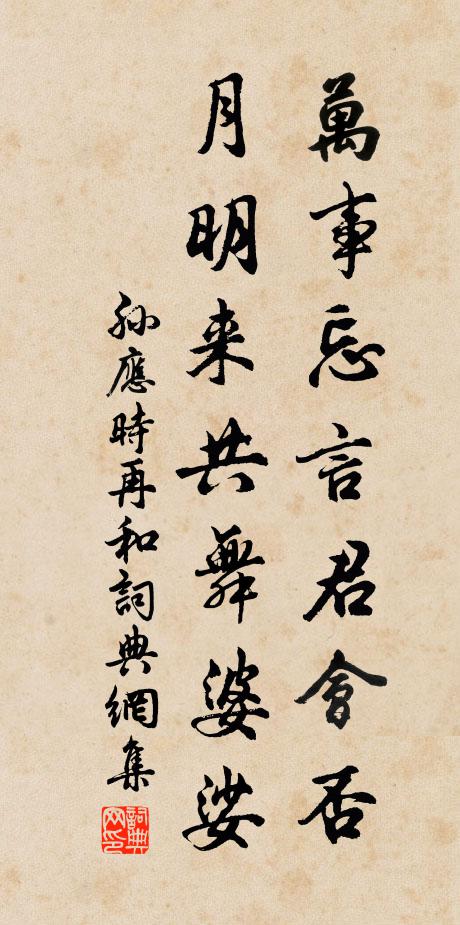 萬事忘言君會否
月明来共舞婆娑
孫應時再和詞典網集
詞典網印